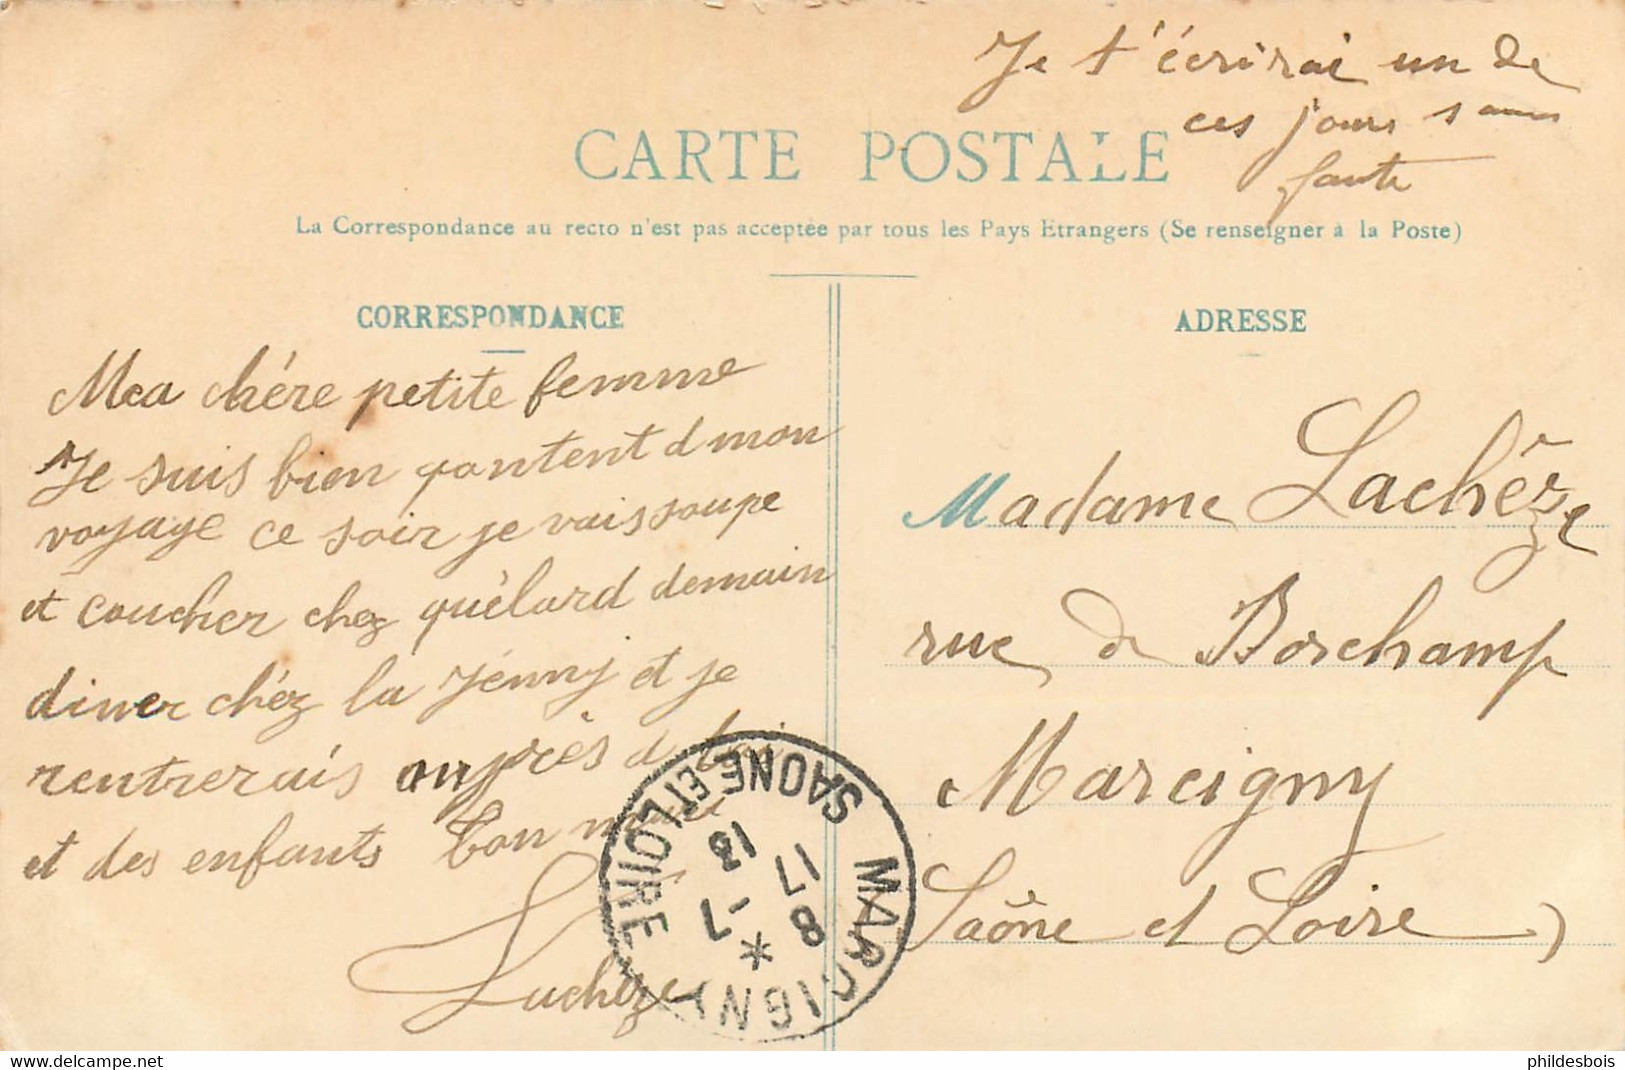 Je t'écrirai un de
ces jours sans
faute
CARTE POSTALE
La Correspondance au recto n'est pas acceptée par tous les Pays Etrangers (Se renseigner à la Poste)
CORRESPONDANCE
ADRESSE
Mea chére petite femme
Je suis bien qontent d mon
voyage ce soir je vais soupe
et coucher chez quélard demain
diner chéz la Jénny et je
rentrerais auprès de toi
et des enfants ton mari
Lachéze
Madame Lachéze
rue de Borchamp
Marcigny
Saône et Loire
MARCIGNY
SAONE ET LOIRE
17
8 -7
13
delcampe.net
phildesbois